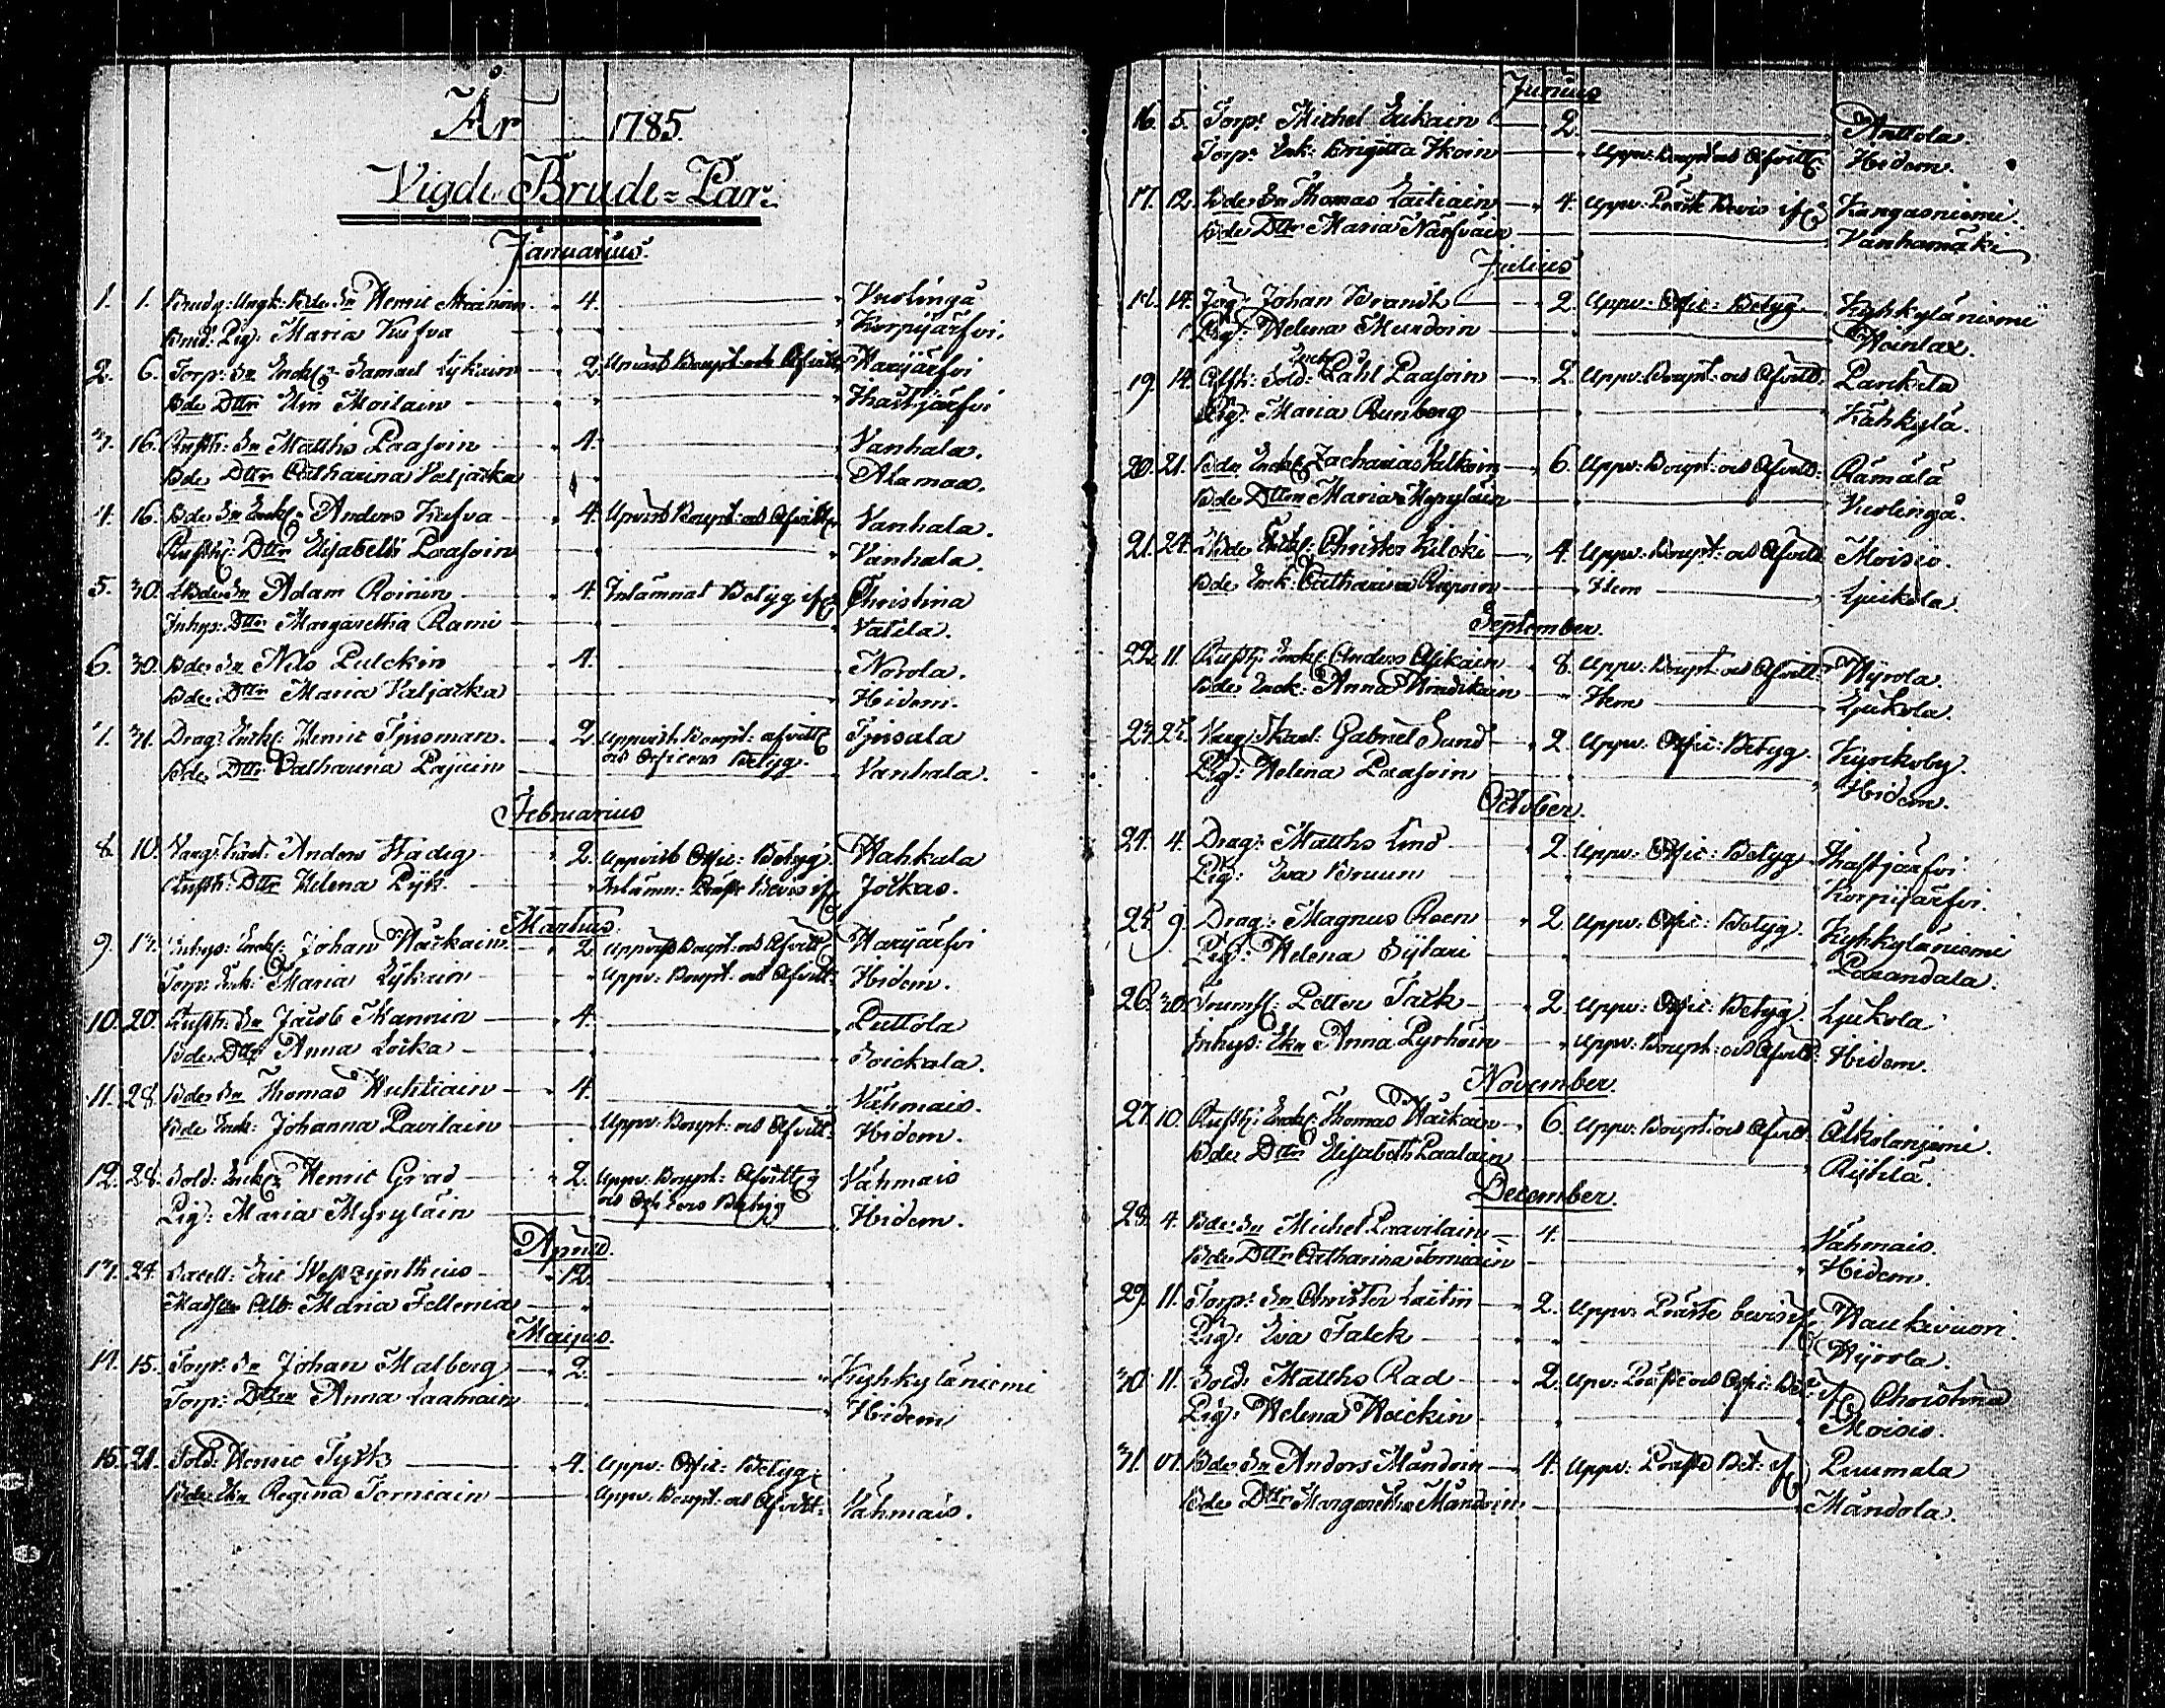 År 1785.
Vigde Brude-Par.
Januarius.
1. 1. Brudg: Ungk: Bde Sn Henric 4. Vuolingå
Brud. Pig: Maria Kufva Korpijärfvi.
2. 6. Torp: Sn Enckl: Samuel Lykain 2. Upvist Boupt: och Afvittr: Harijärfvi
Bde Dttr Elin Moilain Thastjärfvi
3. 16. Rusth: Sn Matths Paasoin 4. Vanhala.
Bde Dttr Catharina Valjacka Ahamaa.
4. 16. Bde Sn Enckl: Anders Kufva 4. Upvist Boupt: och Afvittr: Vanhala.
Rusth: Dttr Elisabeth Paasoin Vanhala.
5. 30. Bde Sn Adam Roinin 4. Inlämnat Betyg Christina
Inhys: Dttr Margaretha Rami Vatila.
6. 30. Bde Sn Nils Pulckin 4. Norola.
Bde Dttr Maria Valjacka Ibidem.
7. 31. Drag: Enckl: Henric Tjusman. 2. Uppvist Boupt: afvittr:
och Officers Betyg. Tjusala
Bde Dttr Catharina Pajuin Vanhala.
Februarius
8. 10. Varg: Karl: Anders Stadig 2. Uppvist Offic: Betyg. Hahkala
Rusth: Dttr Helena Pyk. Inlämn: Präst Bevis Jockas.
Martius.
9. 13. Inhys: Enckl: Johan Hackain 2. Uppvist Boupt: och Afvittr: Harijärfvi
Torp: Enk: Maria Lykain Uppv: Boupt: och Afvittr: Ibidem.
10. 20. Rusth: Sn Jacob Mannin 4. Puttola
Bde Dttr Anna Locka Soickala.
11. 28. Bde Sn Thomas Huhtiain 4. Vähmais.
Bde Enk: Johanna Pavilain Uppv: Boupt: och Afvittr: Ibidem.
12. 28. Sold: Enckl: Henric Grad 2. Uppv: Boupt: Afvittr:
och Officers Betyg Vähmais
Pig: Maria Myryläin Ibidem.
Aprill.
13. 24. Sacell: Eric Wesszynthius 12.
Maria Fellenia
Maijus.
14. 15. Torp: Sn Johan Malberg 2. Kyhkyläniemi
Torp: Dttr Anna Laamain Ibidem
15. 21. Sold: Henric Tysk 4. Uppv: Offic: Betyg:
Bde Ekn Regina Torniain Uppv: Boupt: och Afvittr: Vähmais.
Junius
16. 5. Torp: Michel Eukain 2. Anttola.
Torp: Enk: Brigitta Ikoin Uppv: Boupt: och Afvittr: Ibidem.
17. 12. Bde Sn Thomas Laitiain 4. Uppv: Präste Bevis Kangasniemi.
Bde Dttr Maria Närfväin Vanhamäki
Julius
18. 14. Jäg: Johan Brandt 2. Uppv: Offic: Betyg. Kyhkyläniemi
Pig: Helena Mundoin Hointax.
19. 14. Afsk: Sold: Enckl: Påhl Paasoin 2. Uppv: Boupt: och Afvittr: Parickila
Pig: Maria Runberg Kähkylä.
20. 21. Bde Enckl: Zacharias Valkoin 6. Uppv: Boupt: och Afvittr: Rämälä
Bde Dttr Maria Hyryläin Vuolingå.
21. 24. Bde Enckl: Christer Kiloki 4. Uppv: Boupt: och Afvittr: Moisio.
Bde Enk: Catharina Repoin Item Ljukola.
September.
22. 11. Rusth: Enckl: Anders Asikain 8. Uppv: Boupt: och Afvittr: Hyrola.
Bde Enk: Anna Item Ljukola.
23. 25. Varg: Karl: Gabriel Sund 2. Uppv: Offic: Betyg. Kyrckoby.
Pig: Helena Paasoin Ibidem.
October.
24. 4. Drag: Matths Lind 2. Uppv: Offic: Betyg. Thastjärfvi
Pig: Eva Bruun Korpijärfvi.
25. 9. Drag: Magnus Roen 2. Uppv: Offic: Betyg. Kyhkyläniemi
Pig: Helena Sytari Parandala.
26. 30. Trumsl: Petter Tack 2. Uppv: Offic: Betyg. Ljukola
Inhys: Ekn Anna Pyrhöin Uppv: Boupt: och Afvittr: Ibidem.
November.
27. 10. Rusth: Enckl: Thomas Hackain 6. Uppv: Boupt: och Afvittr: Alkolaniemi.
Bde Dttr Elisabeth Paalain Ryhilä.
December.
28. 4. Bde Sn Michel Paavilain 4. Vähmais.
Bde Dttr Catharina Torniain Ibidem.
29. 11. Torp: Sn Christer Laitin 2. Uppv: Präste bevis Haukivuori.
Pig: Eva Falck Hyrola.
30. 11. Sold: Matths Rad 2. Upv: Präste och Offic: Bet: Christina
Pig: Helena Häckin Moisio.
31. Bde Sn Anders Mändoin 4. Uppv: Präste Bet: Puumala
Bde Dttr Margaretha Mändoin Mändola.